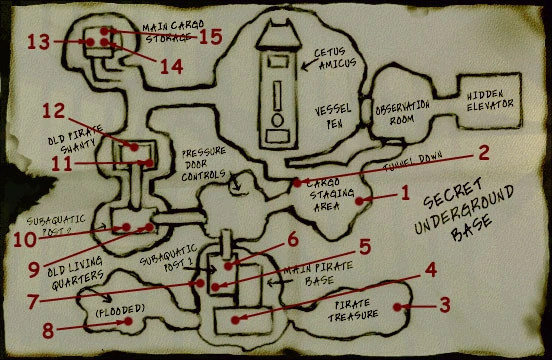 MAIN CARGO
STORAGE
15
13
14
CETUS
AMICUS
HIDDEN
ELEVATOR
VESSEL
PEN
OBSERVATION
ROOM
12
OLD PIRATE
SHANTY
11
PRESSURE
DOOR
CONTROLS
TUNNEL DOWN
2
CARGO
STAGING
AREA
1
SECRET
UNDERGROUND
BASE
SUBAQUATIC
POST 2
10
9
OLD LIVING
QUARTERS
SUBAQUATIC
POST 1
6
5
7
MAIN PIRATE
BASE
4
(FLOODED)
8
PIRATE
TREASURE
3